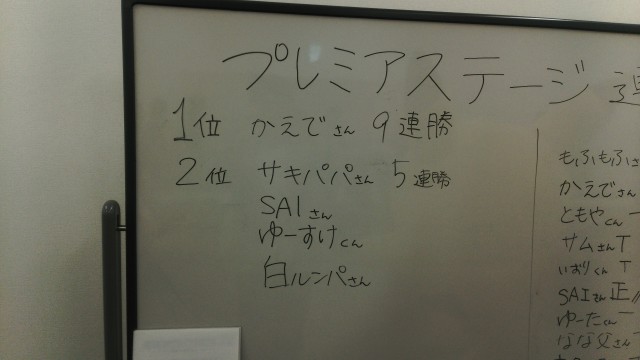 プレミアステージ 連
1位 かえでさん 9連勝
2位 サキパパさん 5連勝
SAIさん
ゆーすけくん
白ルンパさん
もふもふさ
かえでさん
ともやくん 一
サムさん T
いおりくん T
SAIさん 正
ゆーたくん 一
なな父さん